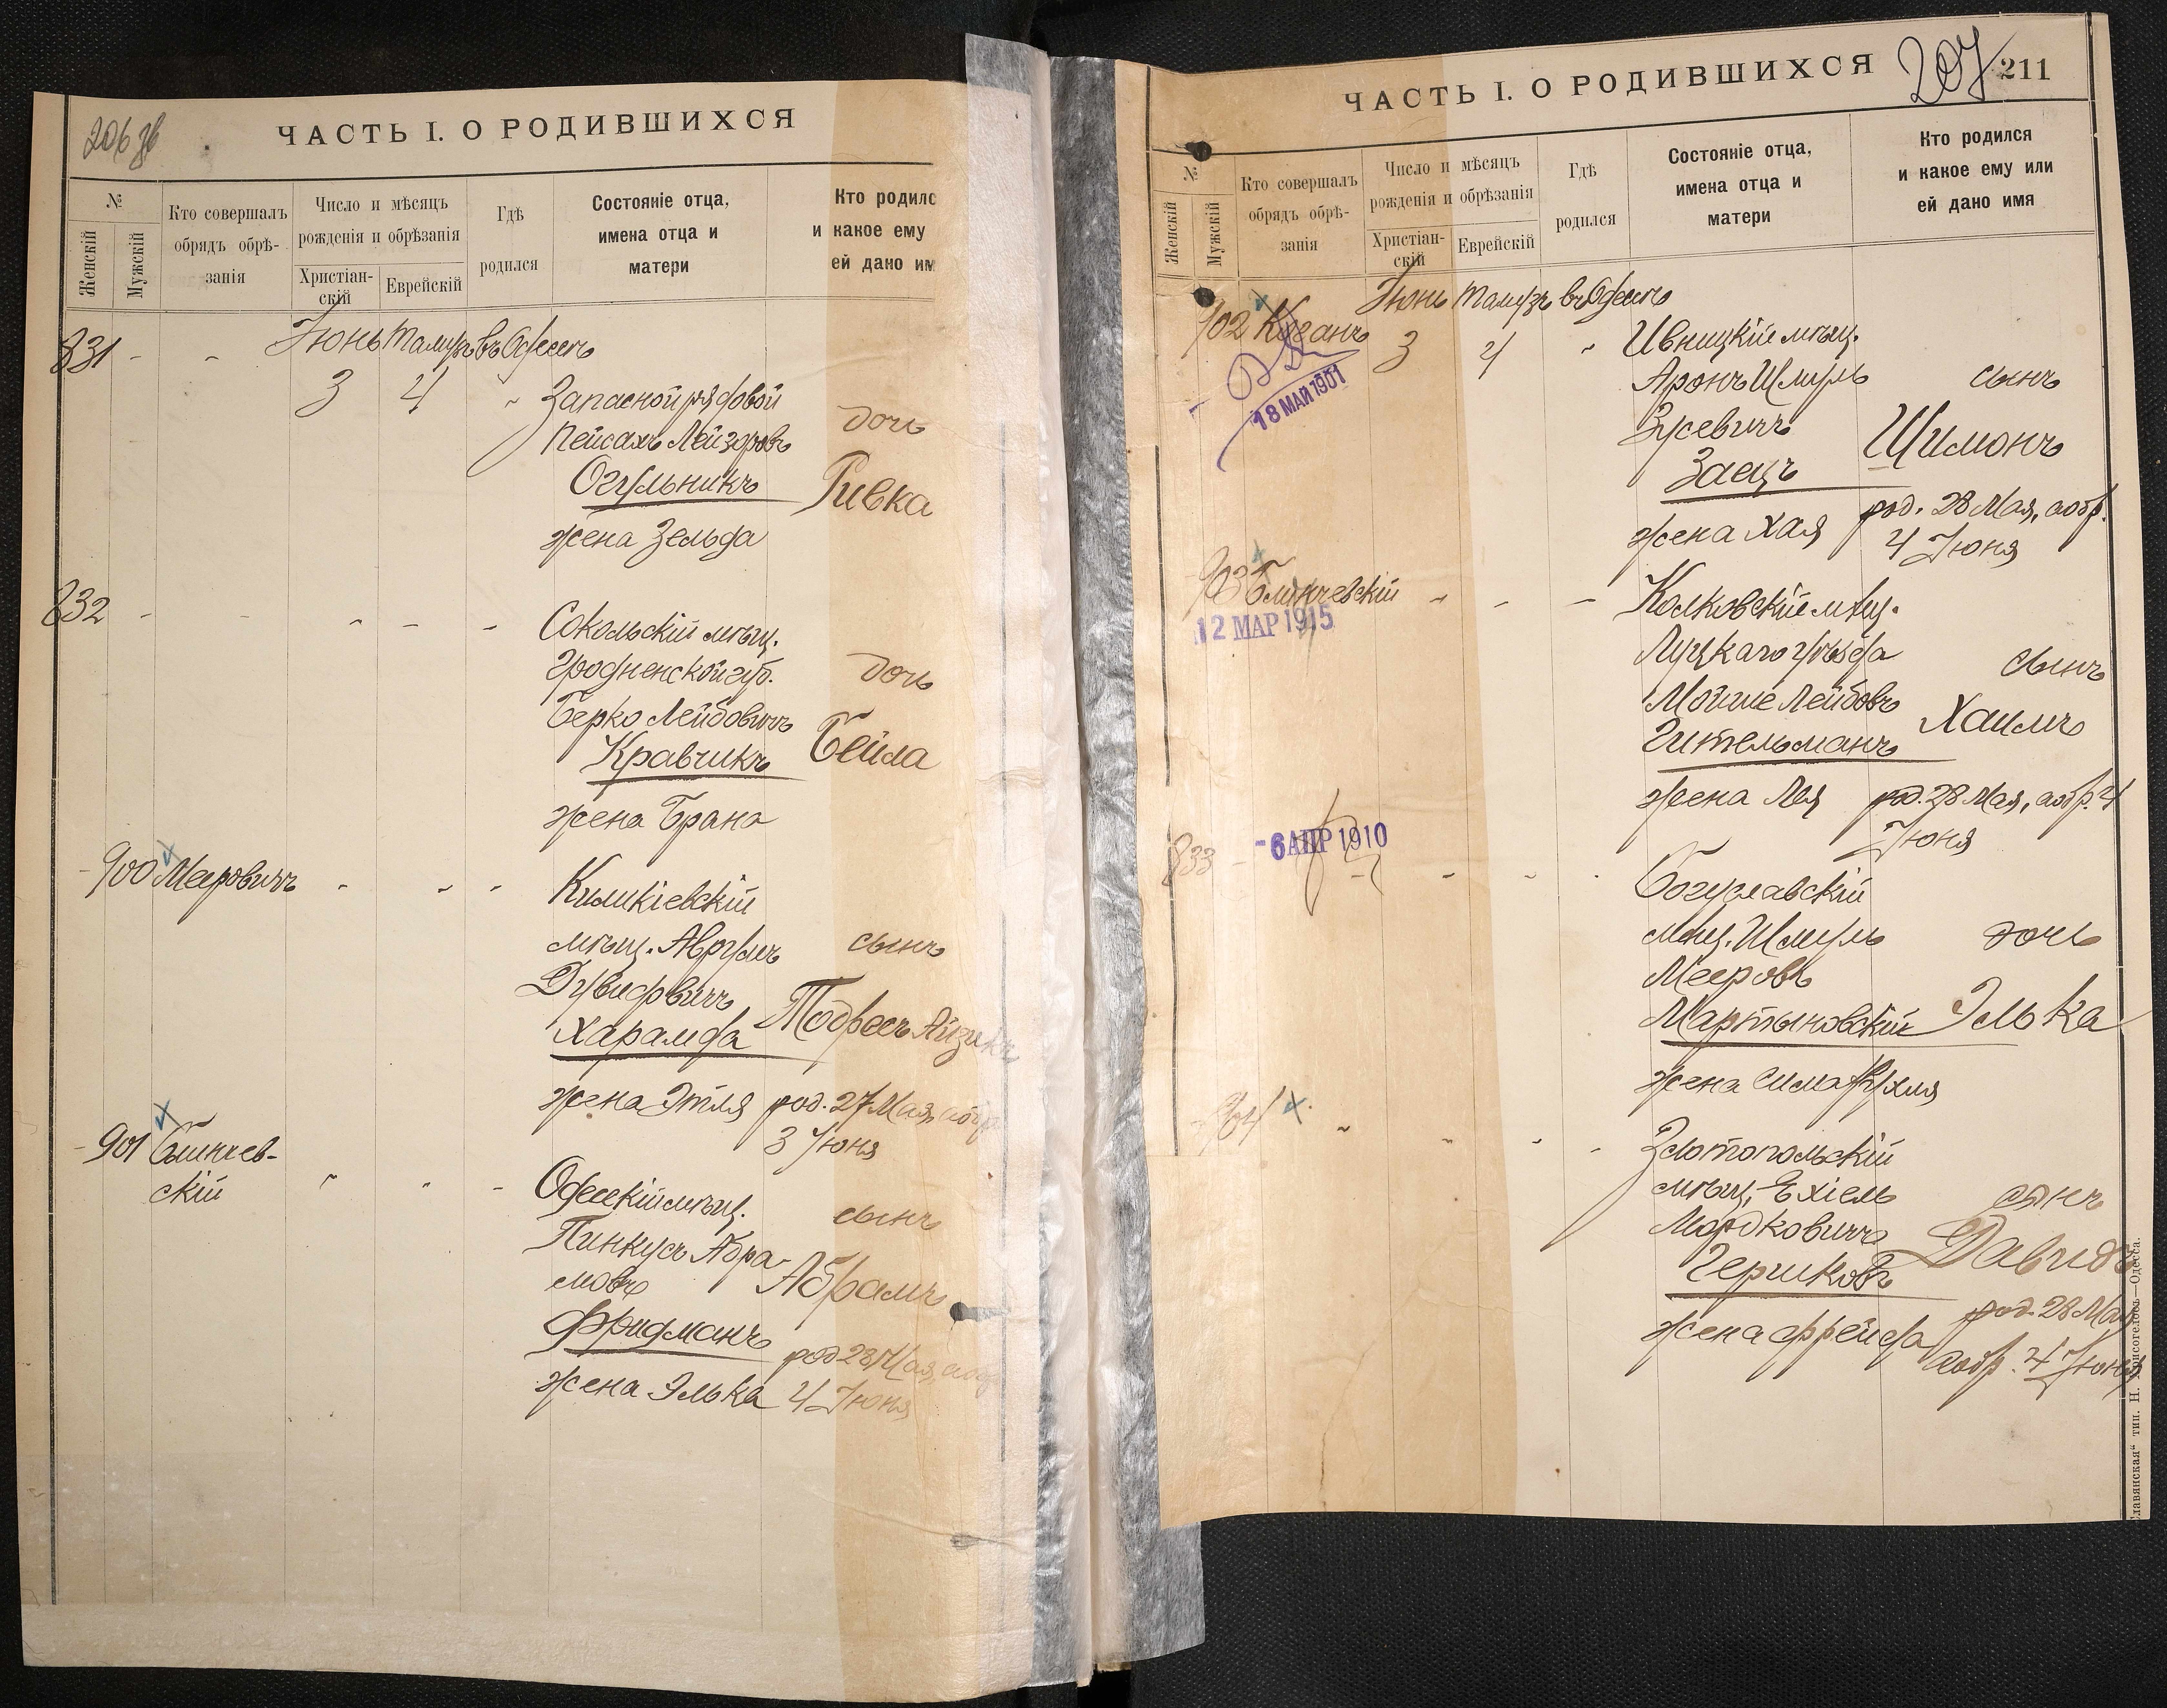 206 об
ЧАСТЬ I. О РОДИВШИХСЯ
№
Женскій
Мужскій
Кто совершалъ
обрядъ обрѣ-
занія
Число и мѣсяцъ
рожденія и обрѣзанія
Христіан-
скій
Еврейскій
Гдѣ
родился
Состояніе отца,
имена отца и
матери
Кто родилс
и какое ему
ей дано им
831 - - Іюнь Тамузъ въ Одессѣ
3 4 " Запасной рядовой
Пейсахъ Лейзоровъ дочь
Огульникъ Ривка
жена Зельда
832 - - - - - Сокольскій мѣщ.
Гродненской губ. дочь
Берко Лейбовичъ
Кравчикъ Бейла
жена Брана
- 900 Мееровичъ - - - Киликіевскій
мѣщ. Аврумъ сынъ
Дувидовичъ
Харамда Тодресъ Айзикъ
жена Этля род. 27 Мая, аобр.
3 Іюня
- 901 Блинчев-
скій - - - Одесскій мѣщ.
Пинкусъ Абра- сынъ
мовъ Абрамъ
Фридманъ
жена Элька род 28 Мая, аобр
4 Іюня
ЧАСТЬ I. О РОДИВШИХСЯ 207 211
№
Женскій
Мужскій
Кто совершалъ
обрядъ обрѣ-
занія
Число и мѣсяцъ
рожденія и обрѣзанія
Христіан-
скій
Еврейскій
Гдѣ
родился
Состояніе отца,
имена отца и
матери
Кто родился
и какое ему или
ей дано имя
902 Куганъ Іюнь Тамузъ въ Одессѣ
3 4 " Ивницкій мѣщ.
18 МАЙ 1901
Аронъ Шмуль сынъ
Зусевичъ Шимонъ
Заецъ
жена Хая род. 28 Мая, аобр.
4 Іюня
- 903 Блинчевскій - - - Колковскій мѣщ.
12 МАР 1915
Луцкаго уѣзда сынъ
Мойше Лейбовъ Хаимъ
Гительманъ
жена Лея род. 28 Мая, аобр. 4
Іюня
833 - - 6 АПР 1910 - - Богуславскій
мѣщ. Шмуль дочь
Мееровъ
Мартыновскій Элька
жена Сима Рухля
- 904 - - - - Златопольскій
мѣщ. Ехіель сынъ
Мордковичъ Давидъ
Чериковъ
жена Фрейда род. 28 Мая
аобр. 4 Іюня
лавянская" тип. Н. Хрисогелосъ—Одесса.